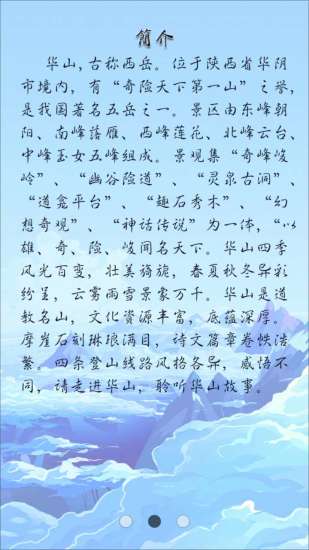 簡介
华山,古称西岳。位于陕西省华阴
市境内，有“奇险天下第一山”之举，
是我国著名五岳之一。景区由东峰朝
阳、南峰落雁、西峰莲花、北峰云台、
中峰玉女五峰组成。景观集“奇峰峻
岭”、“幽谷险道”、“灵泉古洞”、
“道龛平台”、“趣石秀木”、“幻
想奇观”、“神话传说”为一体，“以
雄、奇、险、峻闻名天下。华山四季
风光百变，壮美旖旎，春夏秋冬异彩
纷呈，云雾雨雪景象万千。华山是道
教名山，文化资源丰富，底蕴深厚。
摩崖石刻琳琅满目，诗文篇章卷帙浩
繁。四条登山线路风格各异，感悟不
同，请走进华山，聆听华山故事。